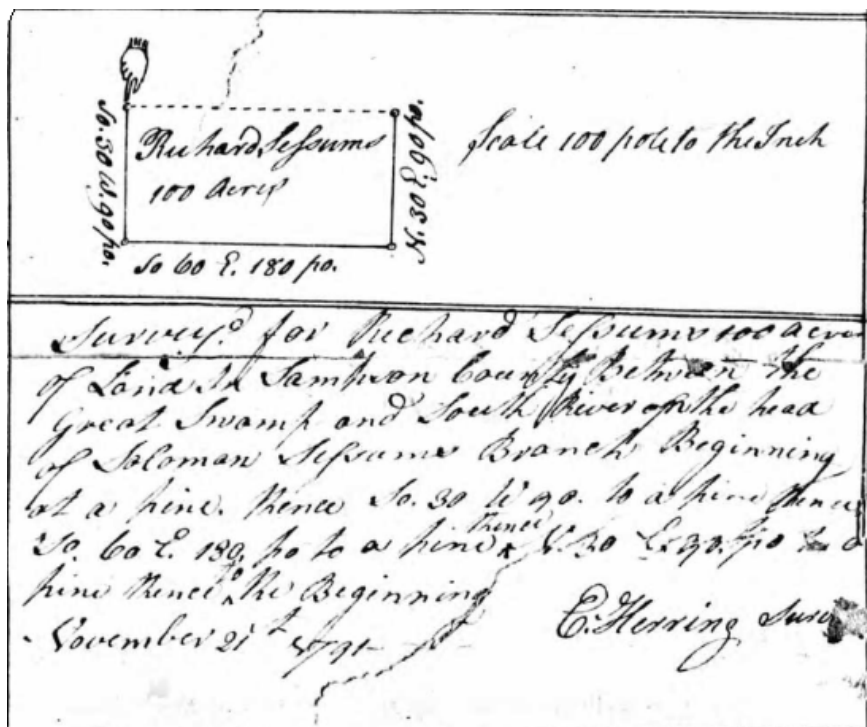 So. 30 W. 90 po.
Richard Sessums
100 Acres
N. 30 E. 90 po.
So 60 E. 180 po.
Scale 100 pole to the Inch
Survey.d for Richard Sessums 100 acres
of Land In Sampson County Between the
Great Swamp and South River on the head
of Soloman Sessums Branch Beginning
at a pine. thence So. 30 W 90. to a pine thence
So. 60 E. 180. po to a pine thence N. 30 E. 90. po to a
pine thence to the Beginning
November 21st 1791
C. Herring Surv